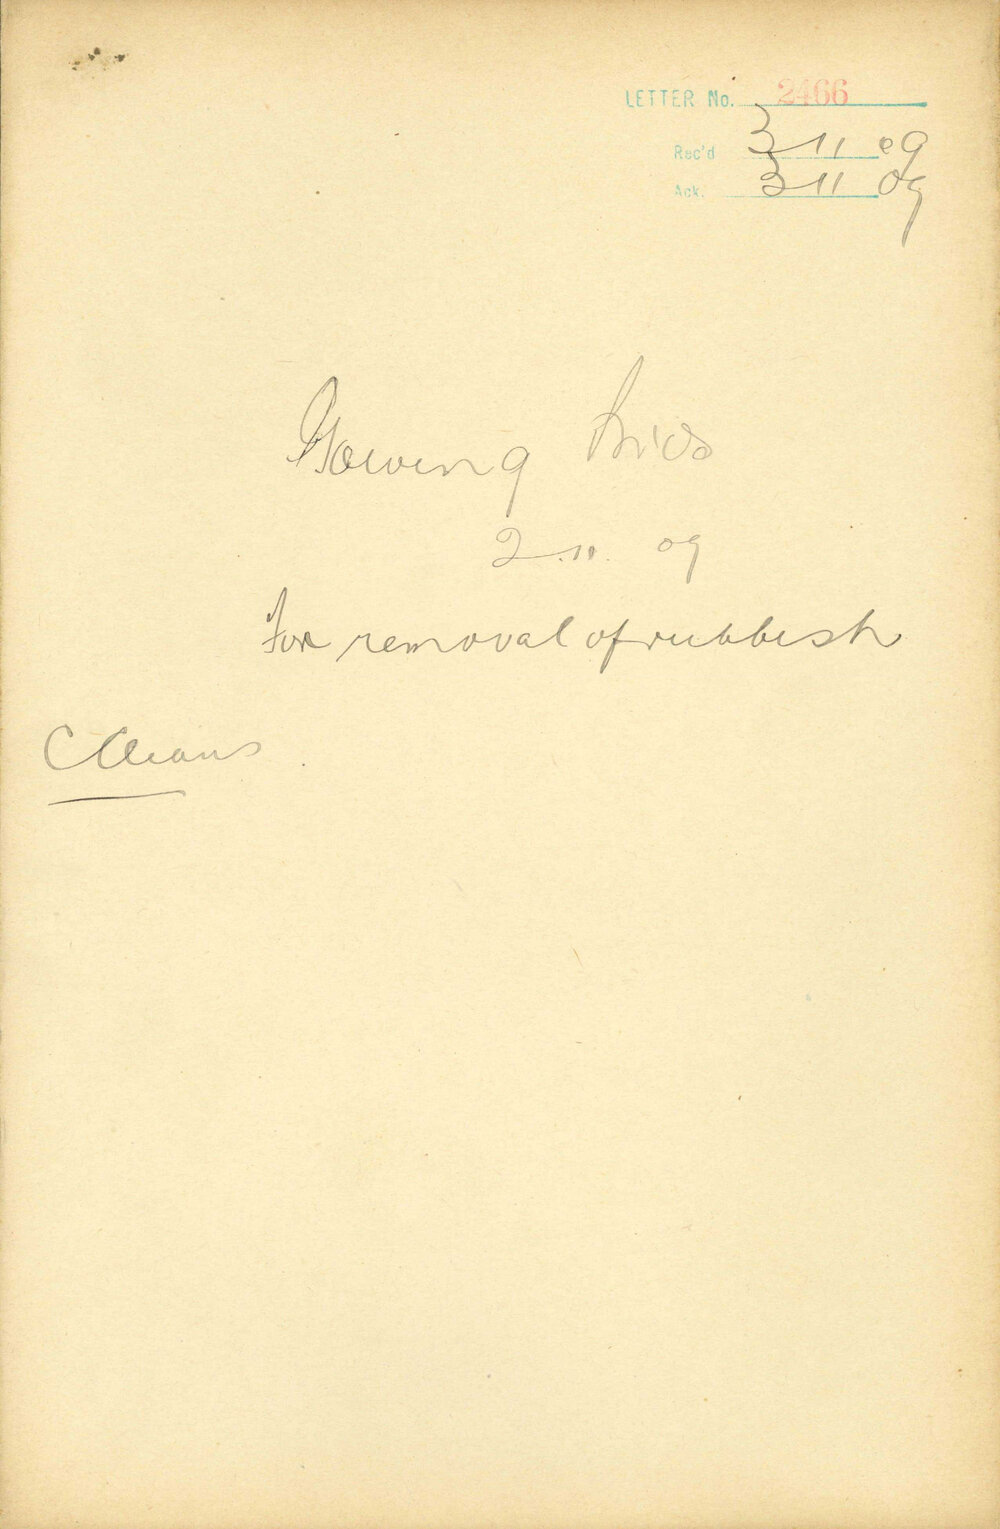 LETTER No. 2466
Rec'd 3 11 09
Ack. 3 11 09
Gowing Bros
2.11. 09
For removal of rubbish